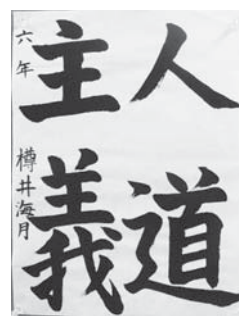 人道
主義
六年 樽井海月